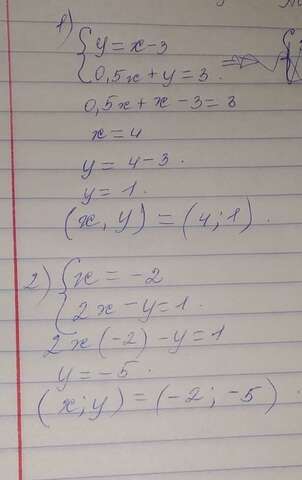 1) { y = x - 3
0,5x + y = 3.
0,5x + x - 3 = 3
x = 4
y = 4 - 3.
y = 1.
(x, y) = (4; 1).
2) { x = -2
2x - y = 1.
2 x (-2) - y = 1
y = -5.
(x; y) = (-2; -5)